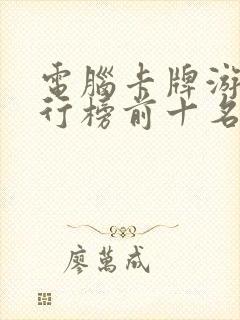 電腦卡牌游
行榜前十名
廖萬成